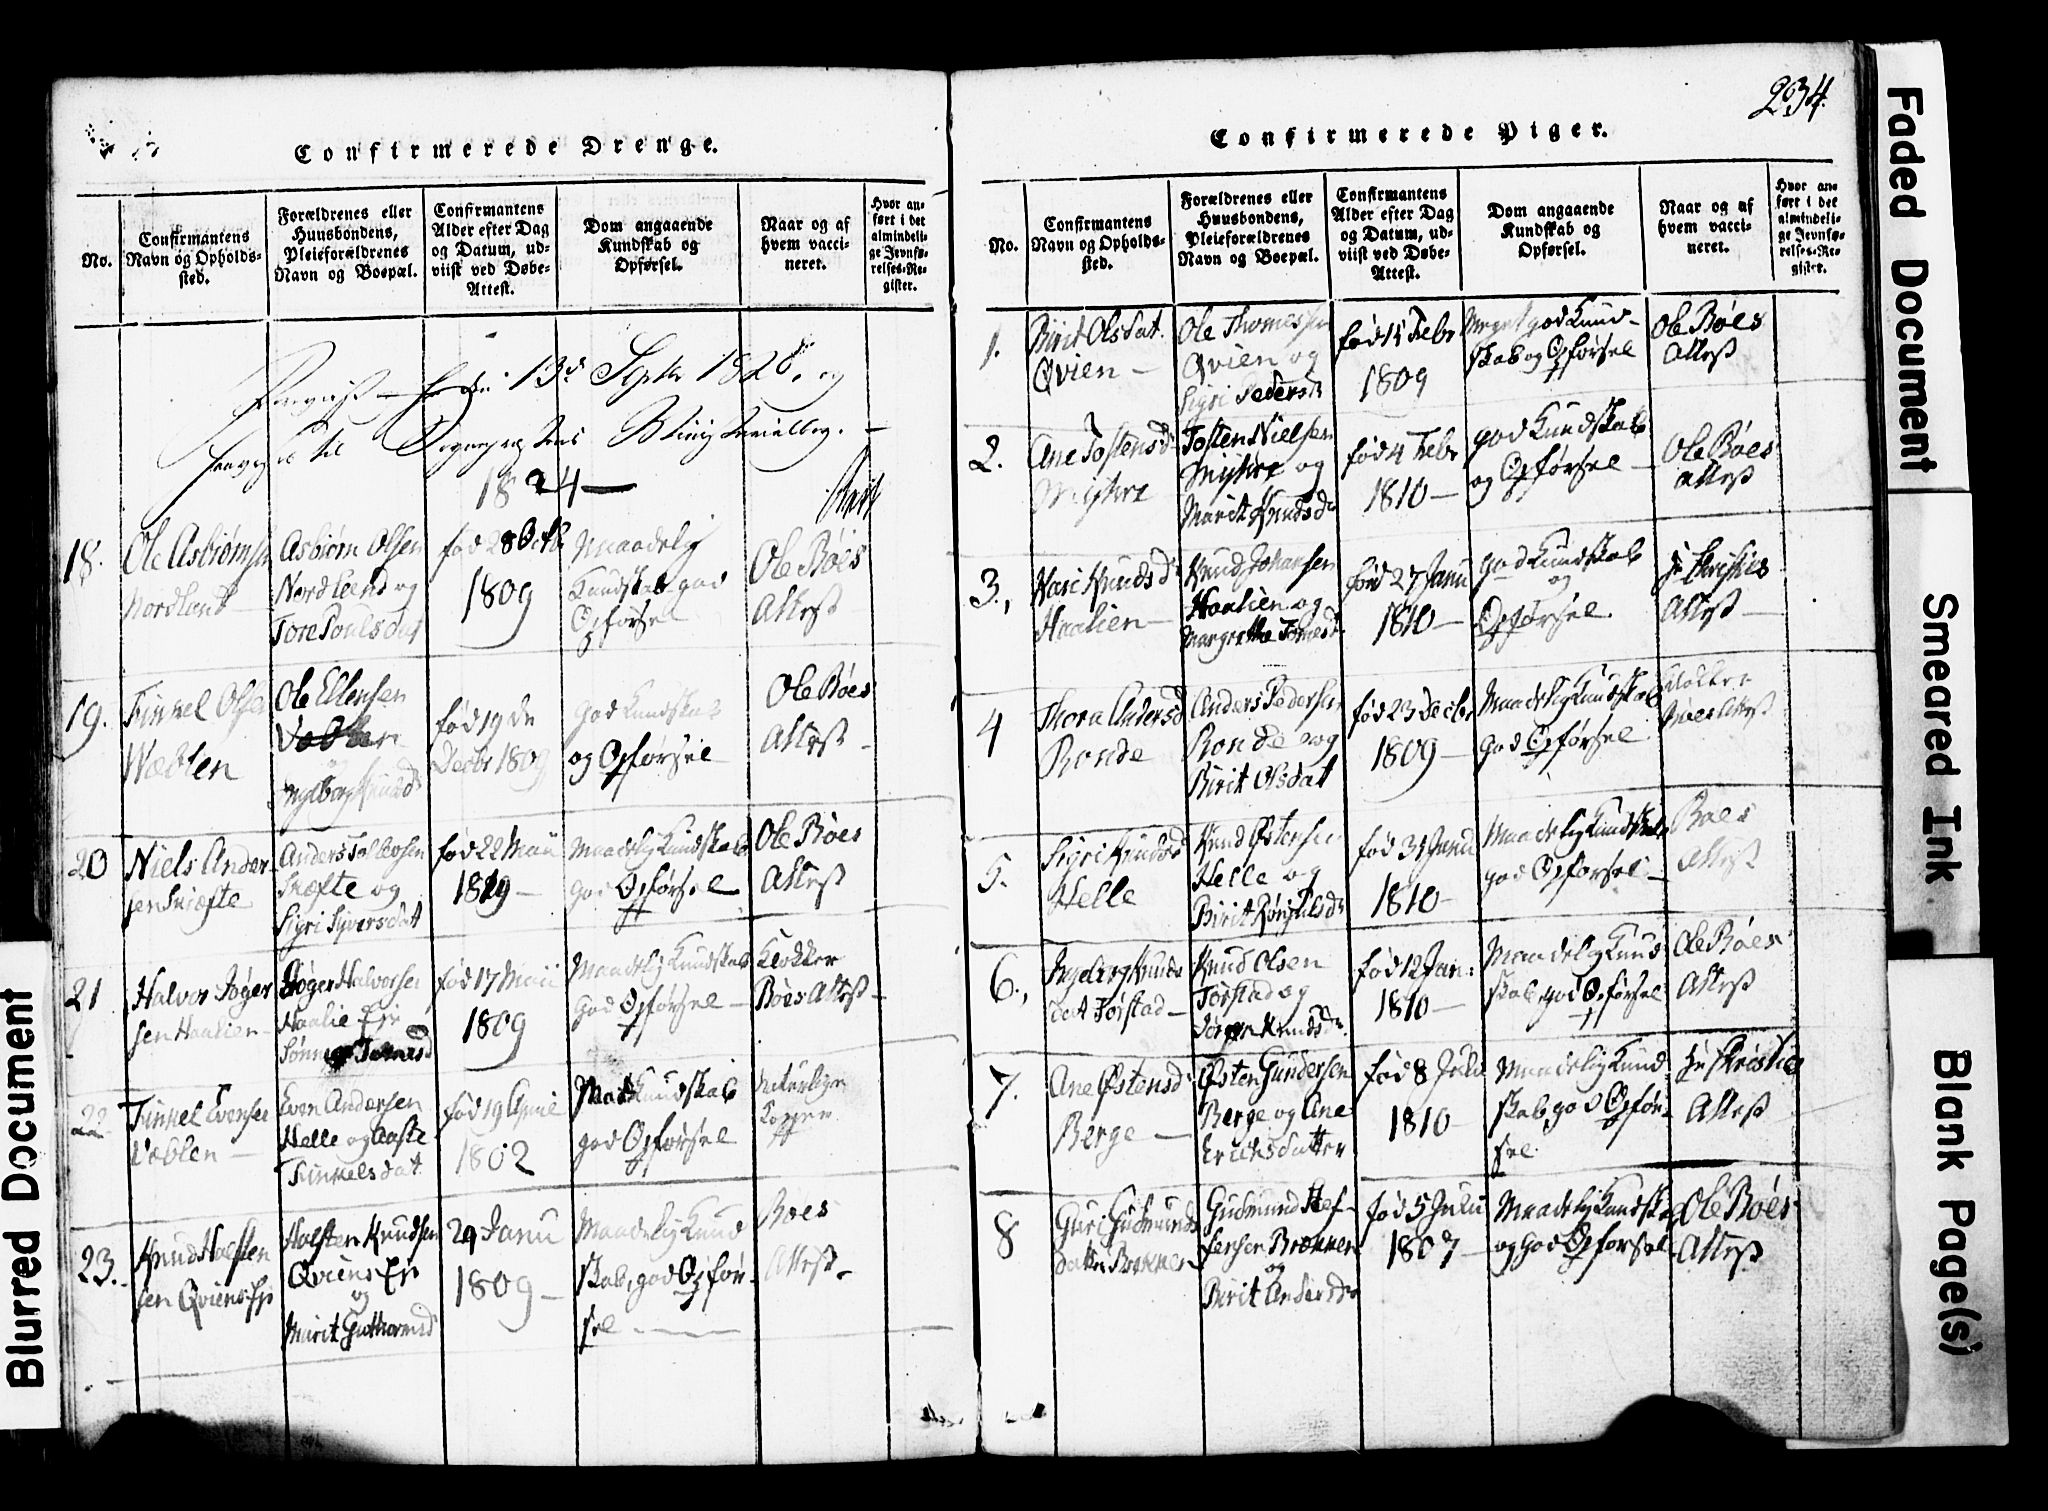 234.
Confirmerede Drenge.
No.
Confirmantens
Navn og Opholds-
sted.
Forældrenes eller
Huusbondens,
Pleieforældrenes
Navn og Boepæl.
Confirmantens
Alder efter Dag
og Datum, ud-
viist ved Døbe-
Attest.
Dom angaaende
Kundskab og
Opførsel.
Naar og af
hvem vacci-
neret.
Hvor an-
ført i det
almindeli-
ge Jevnfø-
relses-Re-
gister.
13de Septbr 1828, og
til
1824 —
18.
Ole Asbiørnsen
Nordland
Asbiørn Olsen
Nordland og
Tore Poulsdat
fød 28 Octb
1809
Maadelig
Kundskab god
Opførsel
Ole Bøes
Attest
19.
Finkel Olsen
Wæblen
Ole Ellensen
Væblen
Ingeborg Knudsd
fød 19 de
Decbr 1809
God Kundskab
og Opførsel
Ole Bøes
Attest –
20
Niels Ander-
sen Skiæfte
Anders Tollevsen
Skiæfte og
Sigri Syversdat
fød 22 Maii
1809 –
Maadelig Kundskab
god Opførsel
Ole Bøes
Attest
21
Halvor Bøger
sen Haalien –
Bøger Halvorsen
Haalie Eie
fød 17 Maii
1809
Maadelig Kundskab
God Opførsel –
Klokker
Bøes Attest –
22
Finkel Evensen
Væblen –
Even Andersen
Helle og Aaste
Finkelsdat
fød 19 April
1802
Maad Kundskab
god Opførsel
Naturlige
Kopper
23.
Knud Halsten
sen Qviens Eje
Halsten Knudsen
Qviens Eje
og
Marit Guthormsd
29 Janu
1809 –
Maadelig Kund
skab, god Opfør-
sel —
Bøes
Attest –
Confirmerede Piger.
No.
Confirmantens
Navn og Opholds-
sted.
Forældrenes eller
Huusbondens,
Pleieforældrenes
Navn og Boepæl.
Confirmantens
Alder efter Dag
og Datum, ud-
viist ved Døbe-
Attest.
Dom angaaende
Kundskab og
Opførsel.
Naar og af
hvem vacci-
neret.
Hvor an-
ført i det
almindeli-
ge Jevnfø-
relses-Re-
gister.
1.
Birit Olsdat.
Qvien –
Ole Thomessen
Qvien og
Sigri Pedersd
fød 15 Febr
1809
Meget god Kund-
skab og Opførsel
Ole Bøes
Attest
2.
Ane Tostensd
Myhre
Tosten Nielsen
Myhre og
Marit Knudsd
fød 4 Febr
1810 –
god Kundskab
og Opførsel –
Ole Bøes
Attest
3.,
Kari Knudsd
Haalien –
Knud Johansen
Haalien og
Margrethe Tomesd
fød 27 Janu
1810 –
god Kundskab
og
Opførsel.
Hr Christies
Attest –
4
Thora Andersd
Ronde
Anders Pedersen
Ronde og
Birit Olsdat
fød 23 Decbr
1809 –
Maadelig Kundskab
God Opførsel.
Klokker
Bøes Attest
5.
Sigri Knudsd
Helle
Knud Østensen
Helle og
fød 31 Janu
1810 –
Maadelig Kundskab
god Opførsel –
Bøes
Attest
6.,
Ingeborg Knuds
dat Førstad –
Knud Olsen
Førstad og
Jørgen Knudsdr.
fød 12 Jan:
1810 –
Maadelig Kund
skab, god Opførsel
Ole Bøes
Attest
7.
Ane Østensd
Berge –
Østen Gundersen
Berge og Ane
Eriksdatter
fød 8 Julii
1810
Maadelig Kund
skab, god Opfør-
sel.
Hr Christies
Attest
8
Guri Gudmunds
datter Brækken
Gudmund Stef-
fensen Brækken
og
Birit Andersdr
fød 5 Julii
1807 –
Maadelig Kundska
og god Opførsel
Ole Bøes
Attest
Faded Document
Smeared Ink
Blank Page(s)
Blurred Document